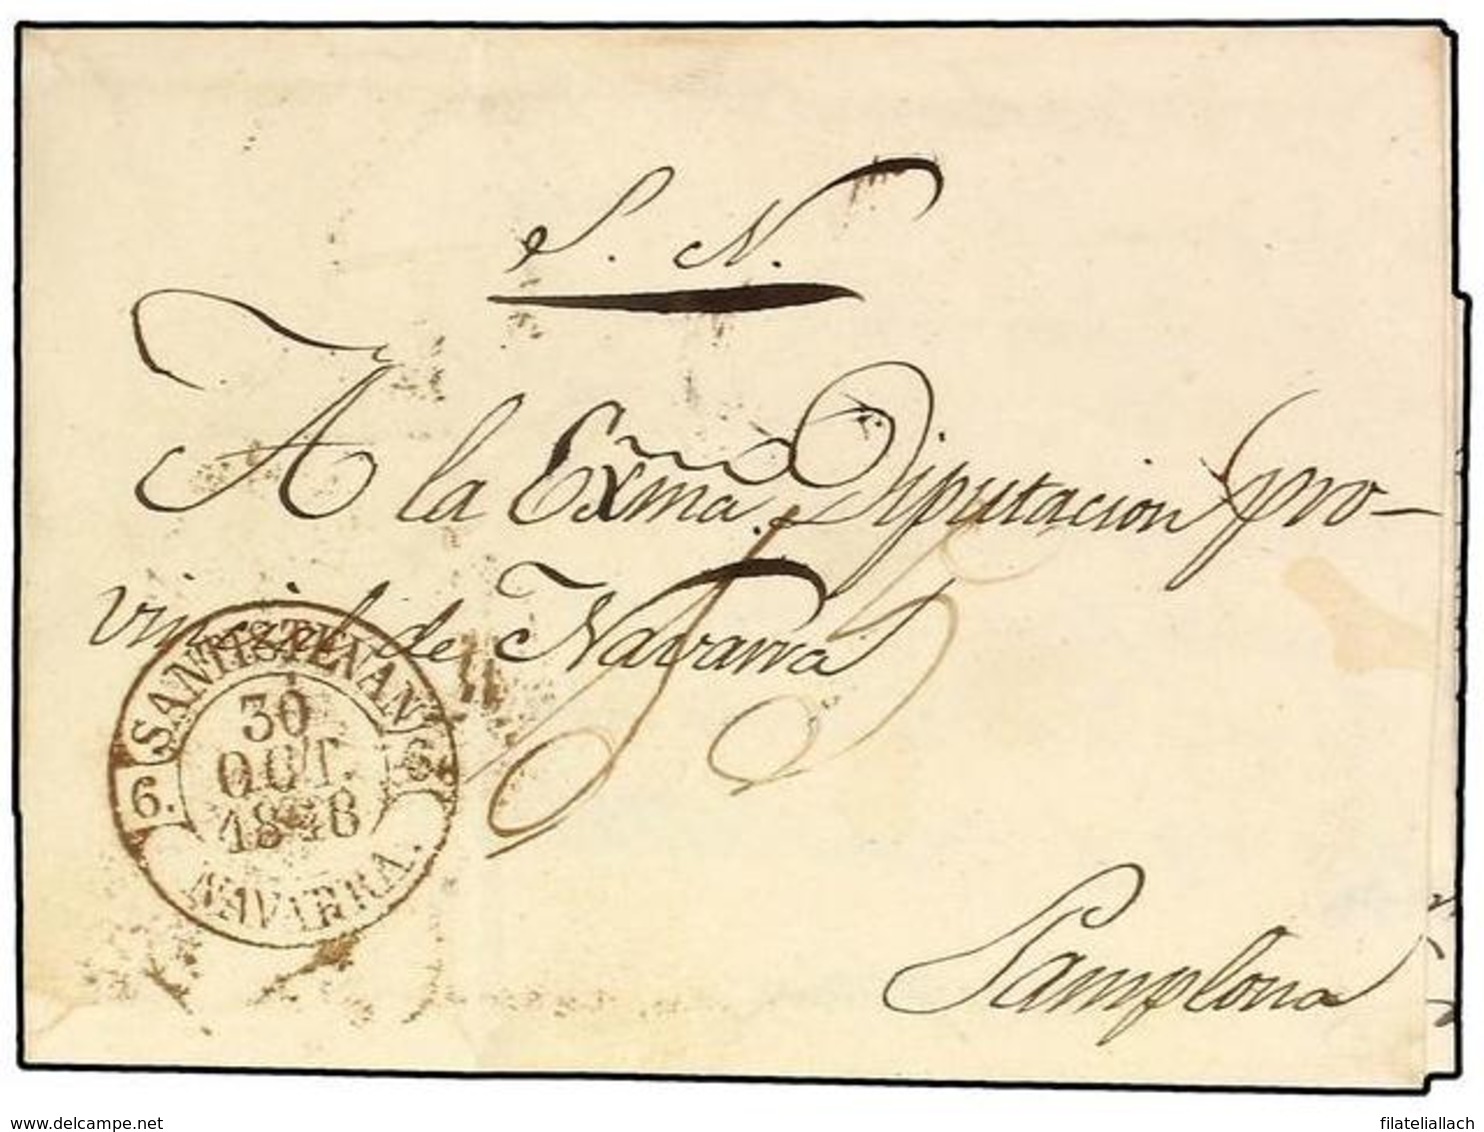 S. N.
A la Exma. Diputacion pro-
vincial de Navarra
SANTISTEVAN
30
OCT.
1848
6. 6.
NAVARRA.
Pamplona
www.delcampe.net
filateliallach